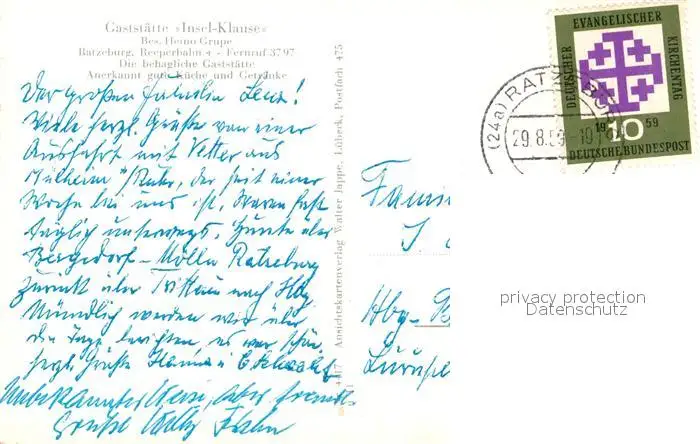 Gaststätte »Insel-Klause«
Bes. Heino Grupe
Ratzeburg, Reeperbahn 4 - Fernruf 3797
Die behagliche Gaststätte
Anerkannt gute Küche und Getränke
Der großen Familie Lenz!
Viele herzl. Grüße von einer
Ausfahrt mit Vetter aus
Mülheim /Ruhr, der seit einer
Woche bei uns ist. Waren fast
täglich unterwegs. Heute über
Bergedorf - Mölln Ratzeburg
zurück über Trittau nach Hbg.
Mündlich werden wir über
die Tage berichten, es war schön
herzl. Grüße Hanna
Unbekannter Weise, aber
Grüße
Ansichtskartenverlag Walter Jappe, Lübeck, Postfach 475
DEUTSCHER EVANGELISCHER KIRCHENTAG
19 20 59
DEUTSCHE BUNDESPOST
(24a) RATZEBURG
29.8.59
Hbg-
privacy protection
Datenschutz